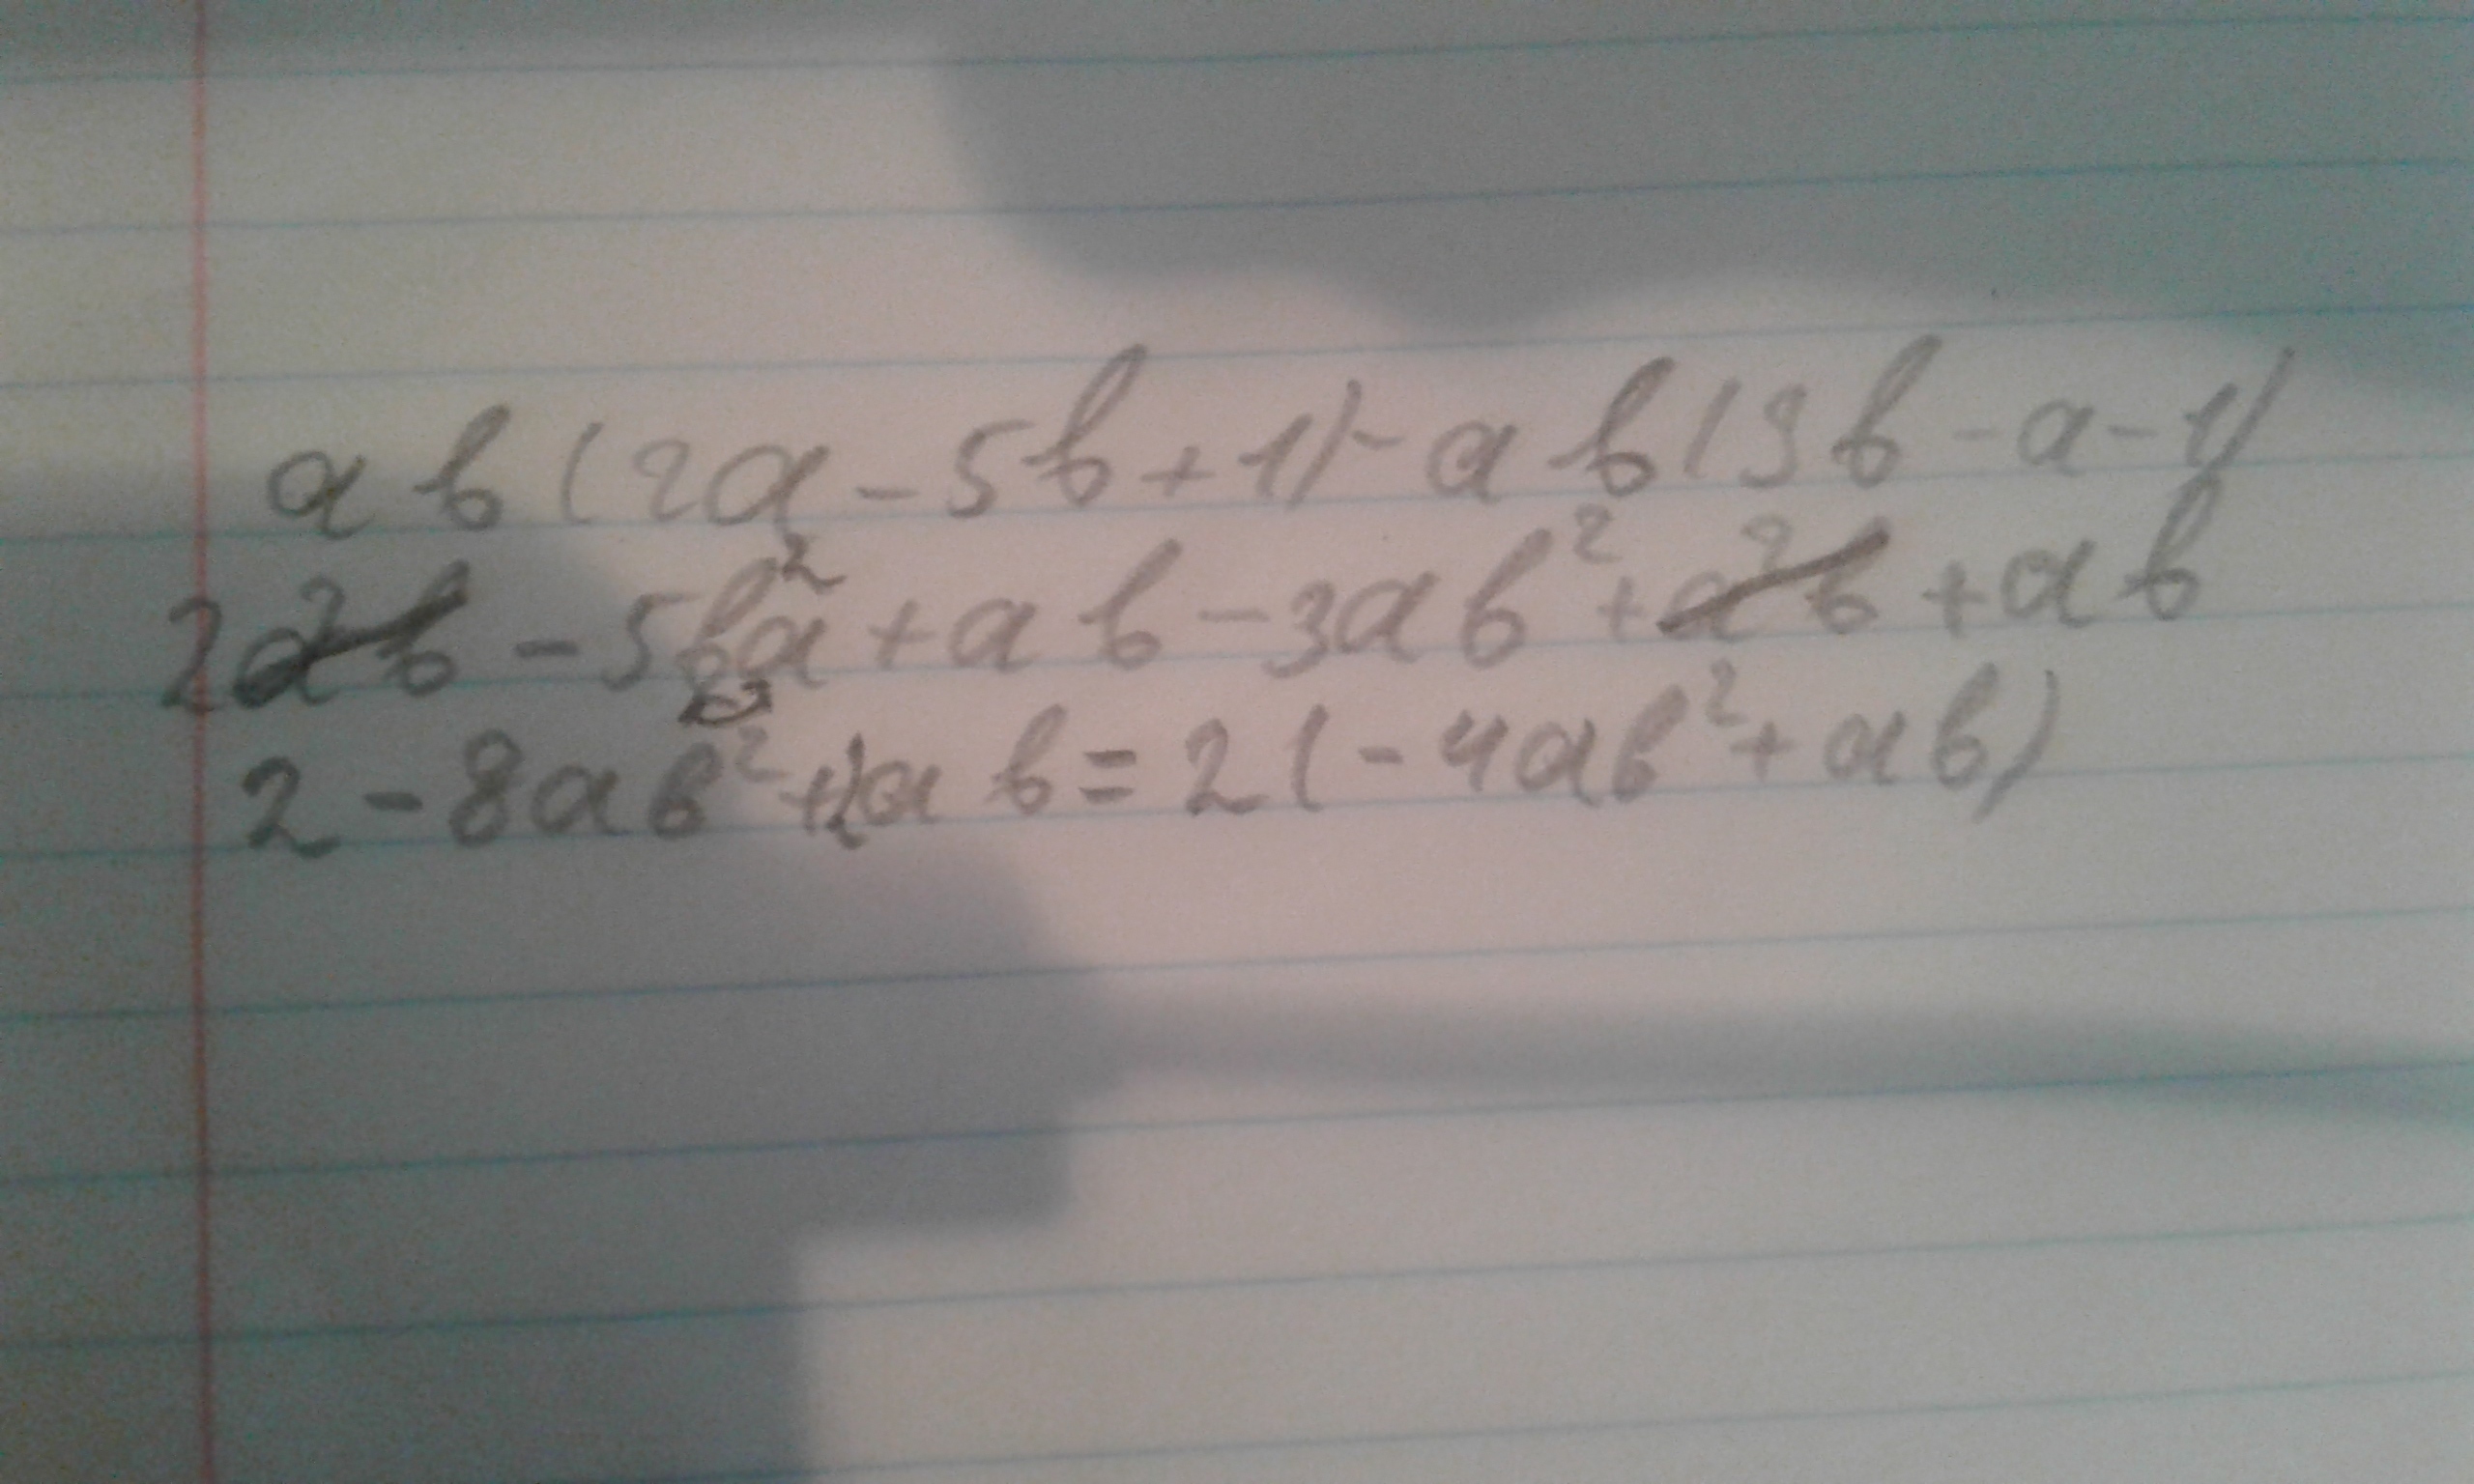 ab(2a-5b+1)-ab(3b-a-1)
2a²b-5b²a+ab-3ab²+a²b+ab
2-8ab²+2ab=2(-4ab²+ab)